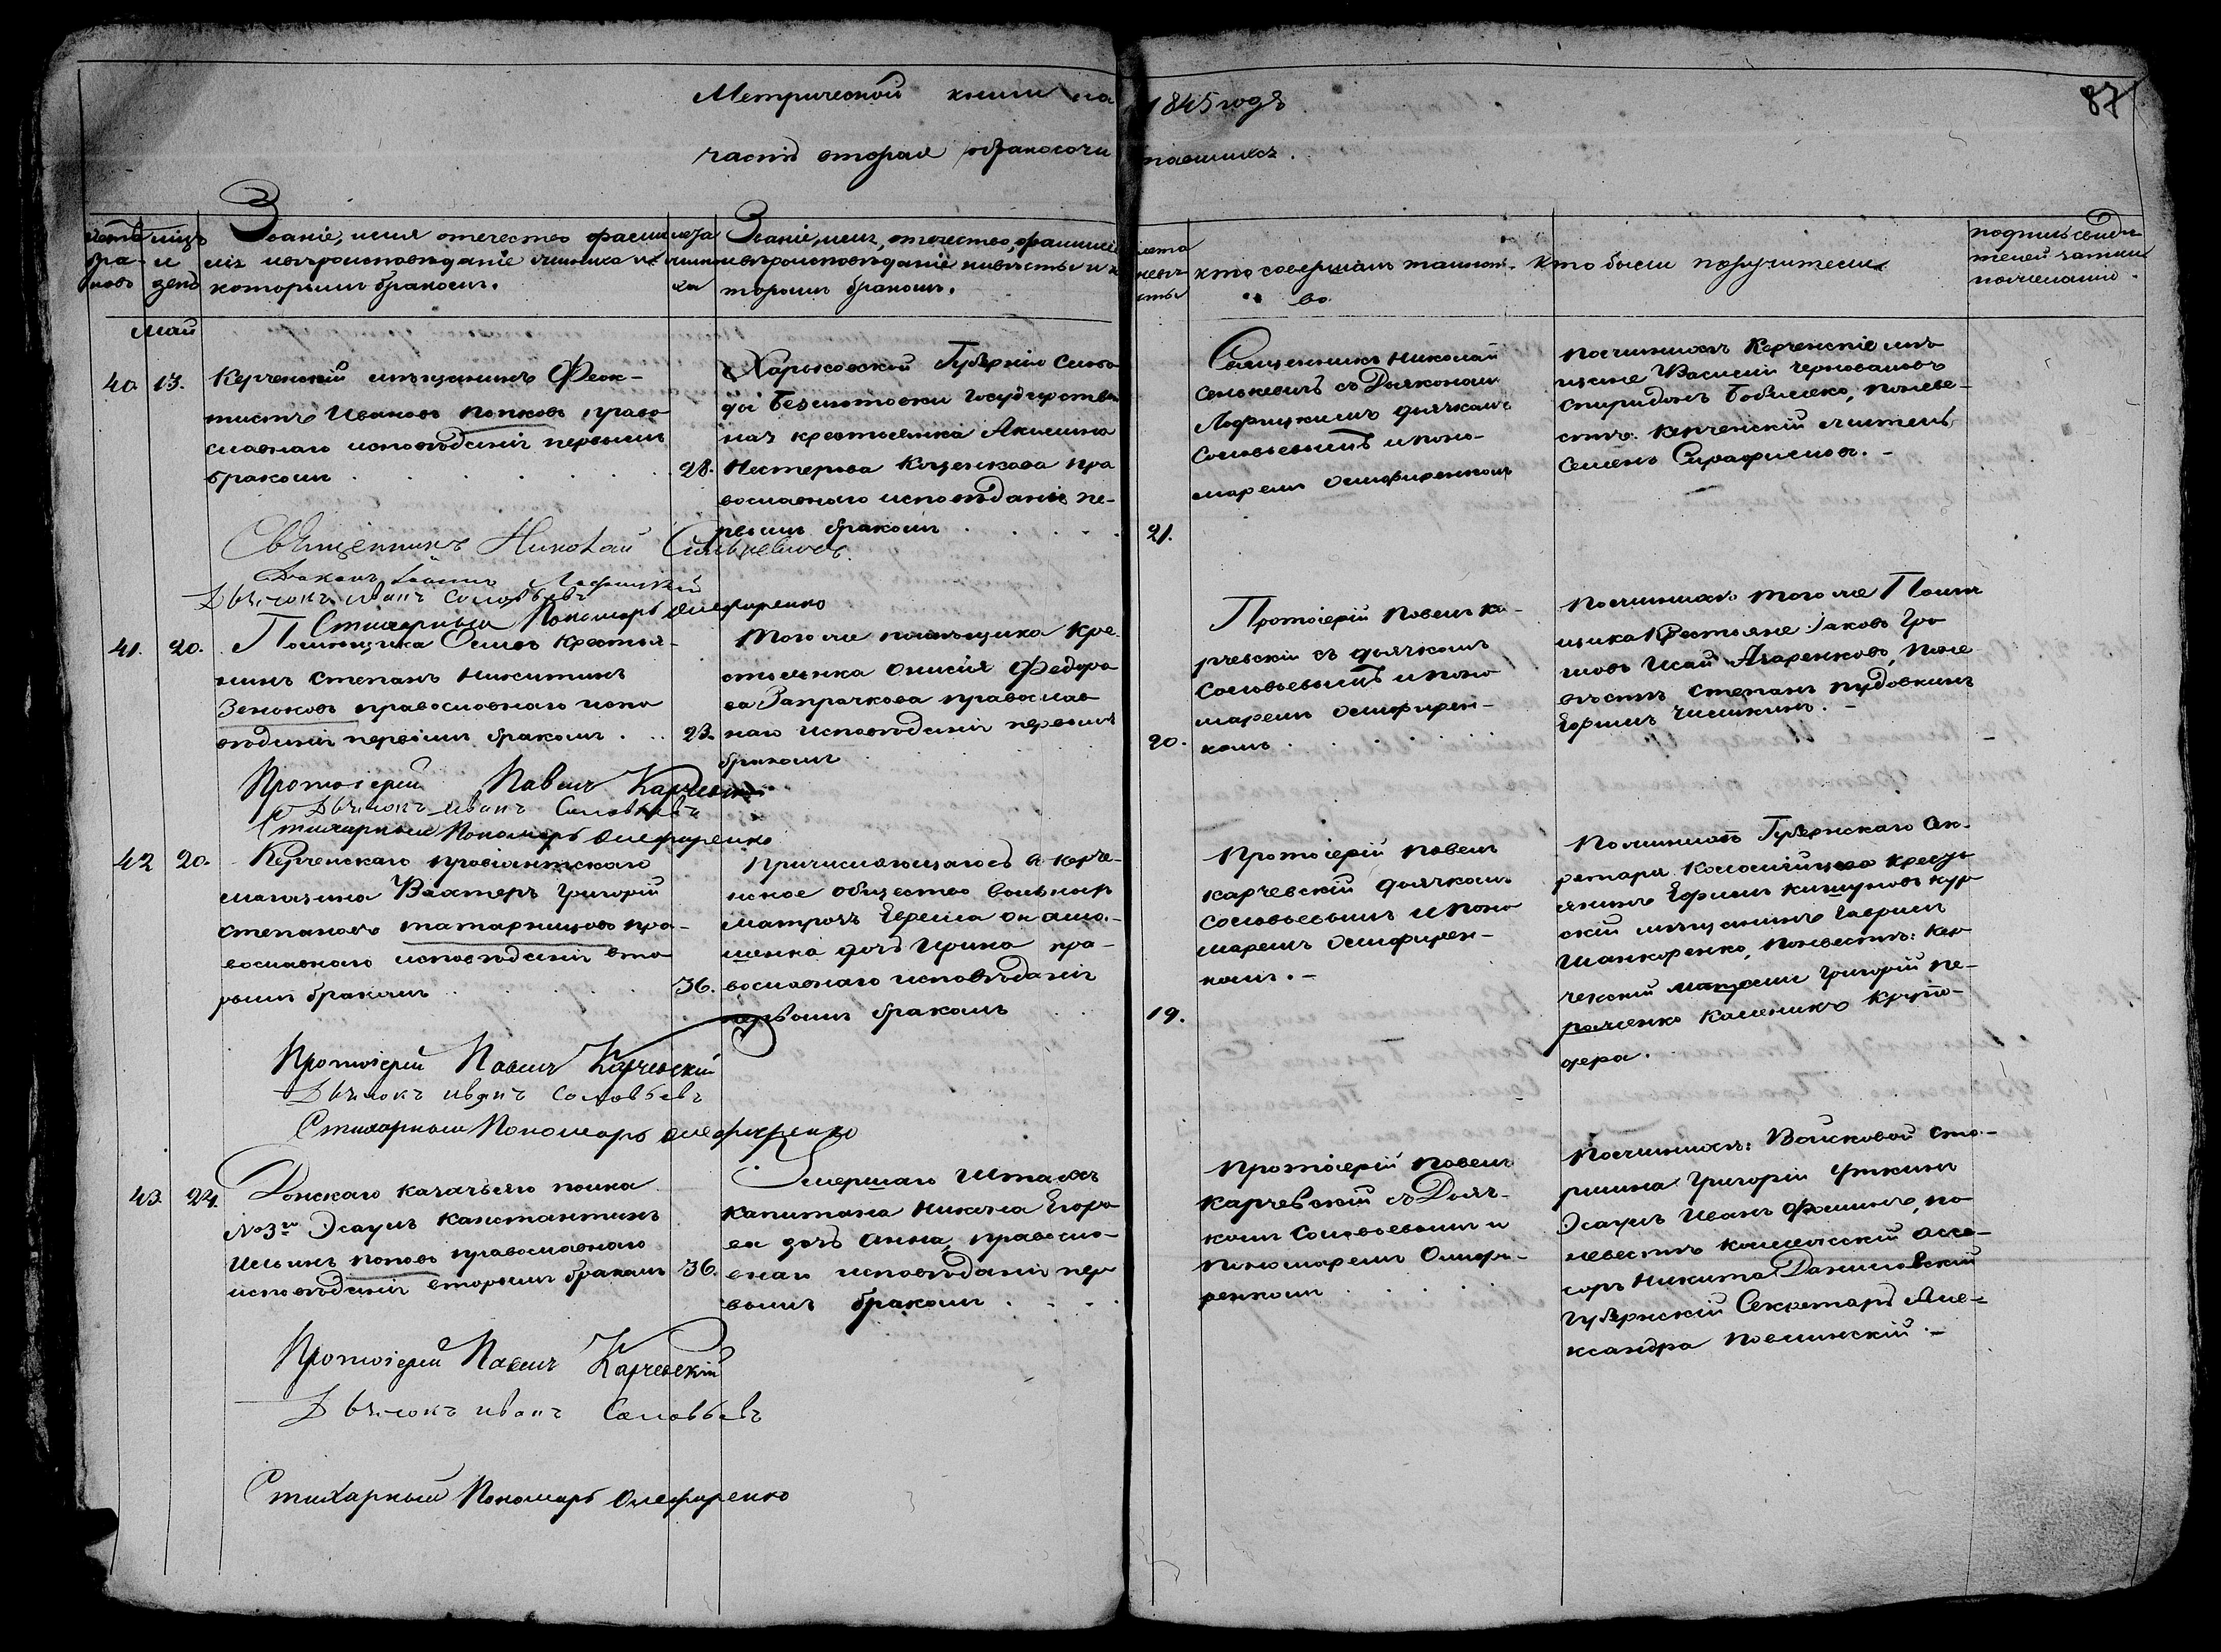 Метрической книги на 1845 годъ
87
часть вторая о бракосочитавшихся.
Званіе, имя отечество фамилія и вѣроисповѣданіе жениха и которымъ бракомъ.
лета жениха
Званіе, имя, отечество, фамилія и вѣроисповѣданіе невѣсты и которымъ бракомъ.
лета невѣсты
кто совершалъ таинство
кто были поручители
подпись свидѣтелей записи по желанію.
май
40. 13.
Керченскій мѣщанинъ Феок-
тистъ Ивановъ Попковъ право
славнаго исповѣданія первымъ
бракомъ
28.
Харьковской Губерніи Слобо
ды государствен
ная крестьянка Акилина
Нестерова пра
вославнаго исповѣданія пе-
рвымъ бракомъ
21.
Священникъ Николай
съ Діякономъ
Лофицкимъ дьячкомъ
Соловьевымъ и поно-
маремъ Олефиренкомъ
По женихѣ Керченскіе мѣ
щане Василій Черноваловъ
Спиридонъ по неве-
стѣ: керченскій житель
Семенъ
Священникъ Николай
Діаконъ Лофицкій
Дьячокъ Иванъ Соловьевъ
Стихарный Пономарь Олефиренко
41. 20.
Помѣщика Крестья-
нинъ Степанъ Никитинъ
Зенковъ православнаго испо
вѣданія первымъ бракомъ
23.
Того же помѣщика кре
стьянка Анисія Федоро
ва Запрачкова православ
наго исповѣданія первымъ
бракомъ
20.
Протоіерей Павелъ Ка-
рчевскій съ дьячкомъ
Соловьевымъ и поно
маремъ Олефирен-
комъ
По женихѣ того же Помѣ
щика Крестьяне Іаковъ Гро
мовъ Исай Азаренковъ, по не
вѣстѣ Степанъ Пудовкинъ
Ефимъ Чижикинъ.
Протоіерей Павелъ Карчевскій
Дьячокъ Иванъ Соловьевъ
Стихарный Пономарь Олефиренко
42 20.
Керченскаго провіянтскаго
магазина Вахтеръ Григорій
Степановъ Татарницовъ пра-
вославнаго исповѣданія вто
рымъ бракомъ
36.
Причисляющагося в керче-
нское общество вольныхъ
матрозъ Ефима
дочь Ирина пра-
вославнаго исповѣданія
первымъ бракомъ
19.
Протоіерей Павелъ
Карчевскій дьячкомъ
Соловьевымъ и поно
маремъ Олефирен-
комъ.
По женихѣ Губернскаго Сек-
ретаря Коломійцова кресть
янинъ Ефимъ кур
скій мѣщанинъ Гаврилъ
Шанкоренко, по невестѣ: кер
ченскій Григорій Пе-
Протоіерей Павелъ Карчевскій
Дьячокъ Иванъ Соловьевъ
Стихарный Пономарь Олефиренко
43. 24.
Донскаго казачьяго полка
№ 3го Эсаулъ Канстантинъ
Ильинъ Поповъ православнаго
исповѣданія вторымъ бракомъ
36.
Умершаго Штабсъ
капитана Никиты Егоро
ва дочь Анна, правосла-
внаго исповѣданія пер
вымъ бракомъ
Протоіерей Павелъ
Карчевскій съ Дьяч-
комъ Соловьевымъ и
Пономаремъ Олефи-
ренкомъ
По женихѣ: Войсковой Ста-
ршина Григорій Уткинъ
Эсаулъ Иванъ Фоминъ, по
невестѣ колежскій ассе-
соръ Никита Даниловскій
Губернскій Секретарь Але-
ксандра
Протоіерей Павелъ Карчевскій
Дьячокъ Иванъ Соловьевъ
Стихарный Пономарь Олефиренко